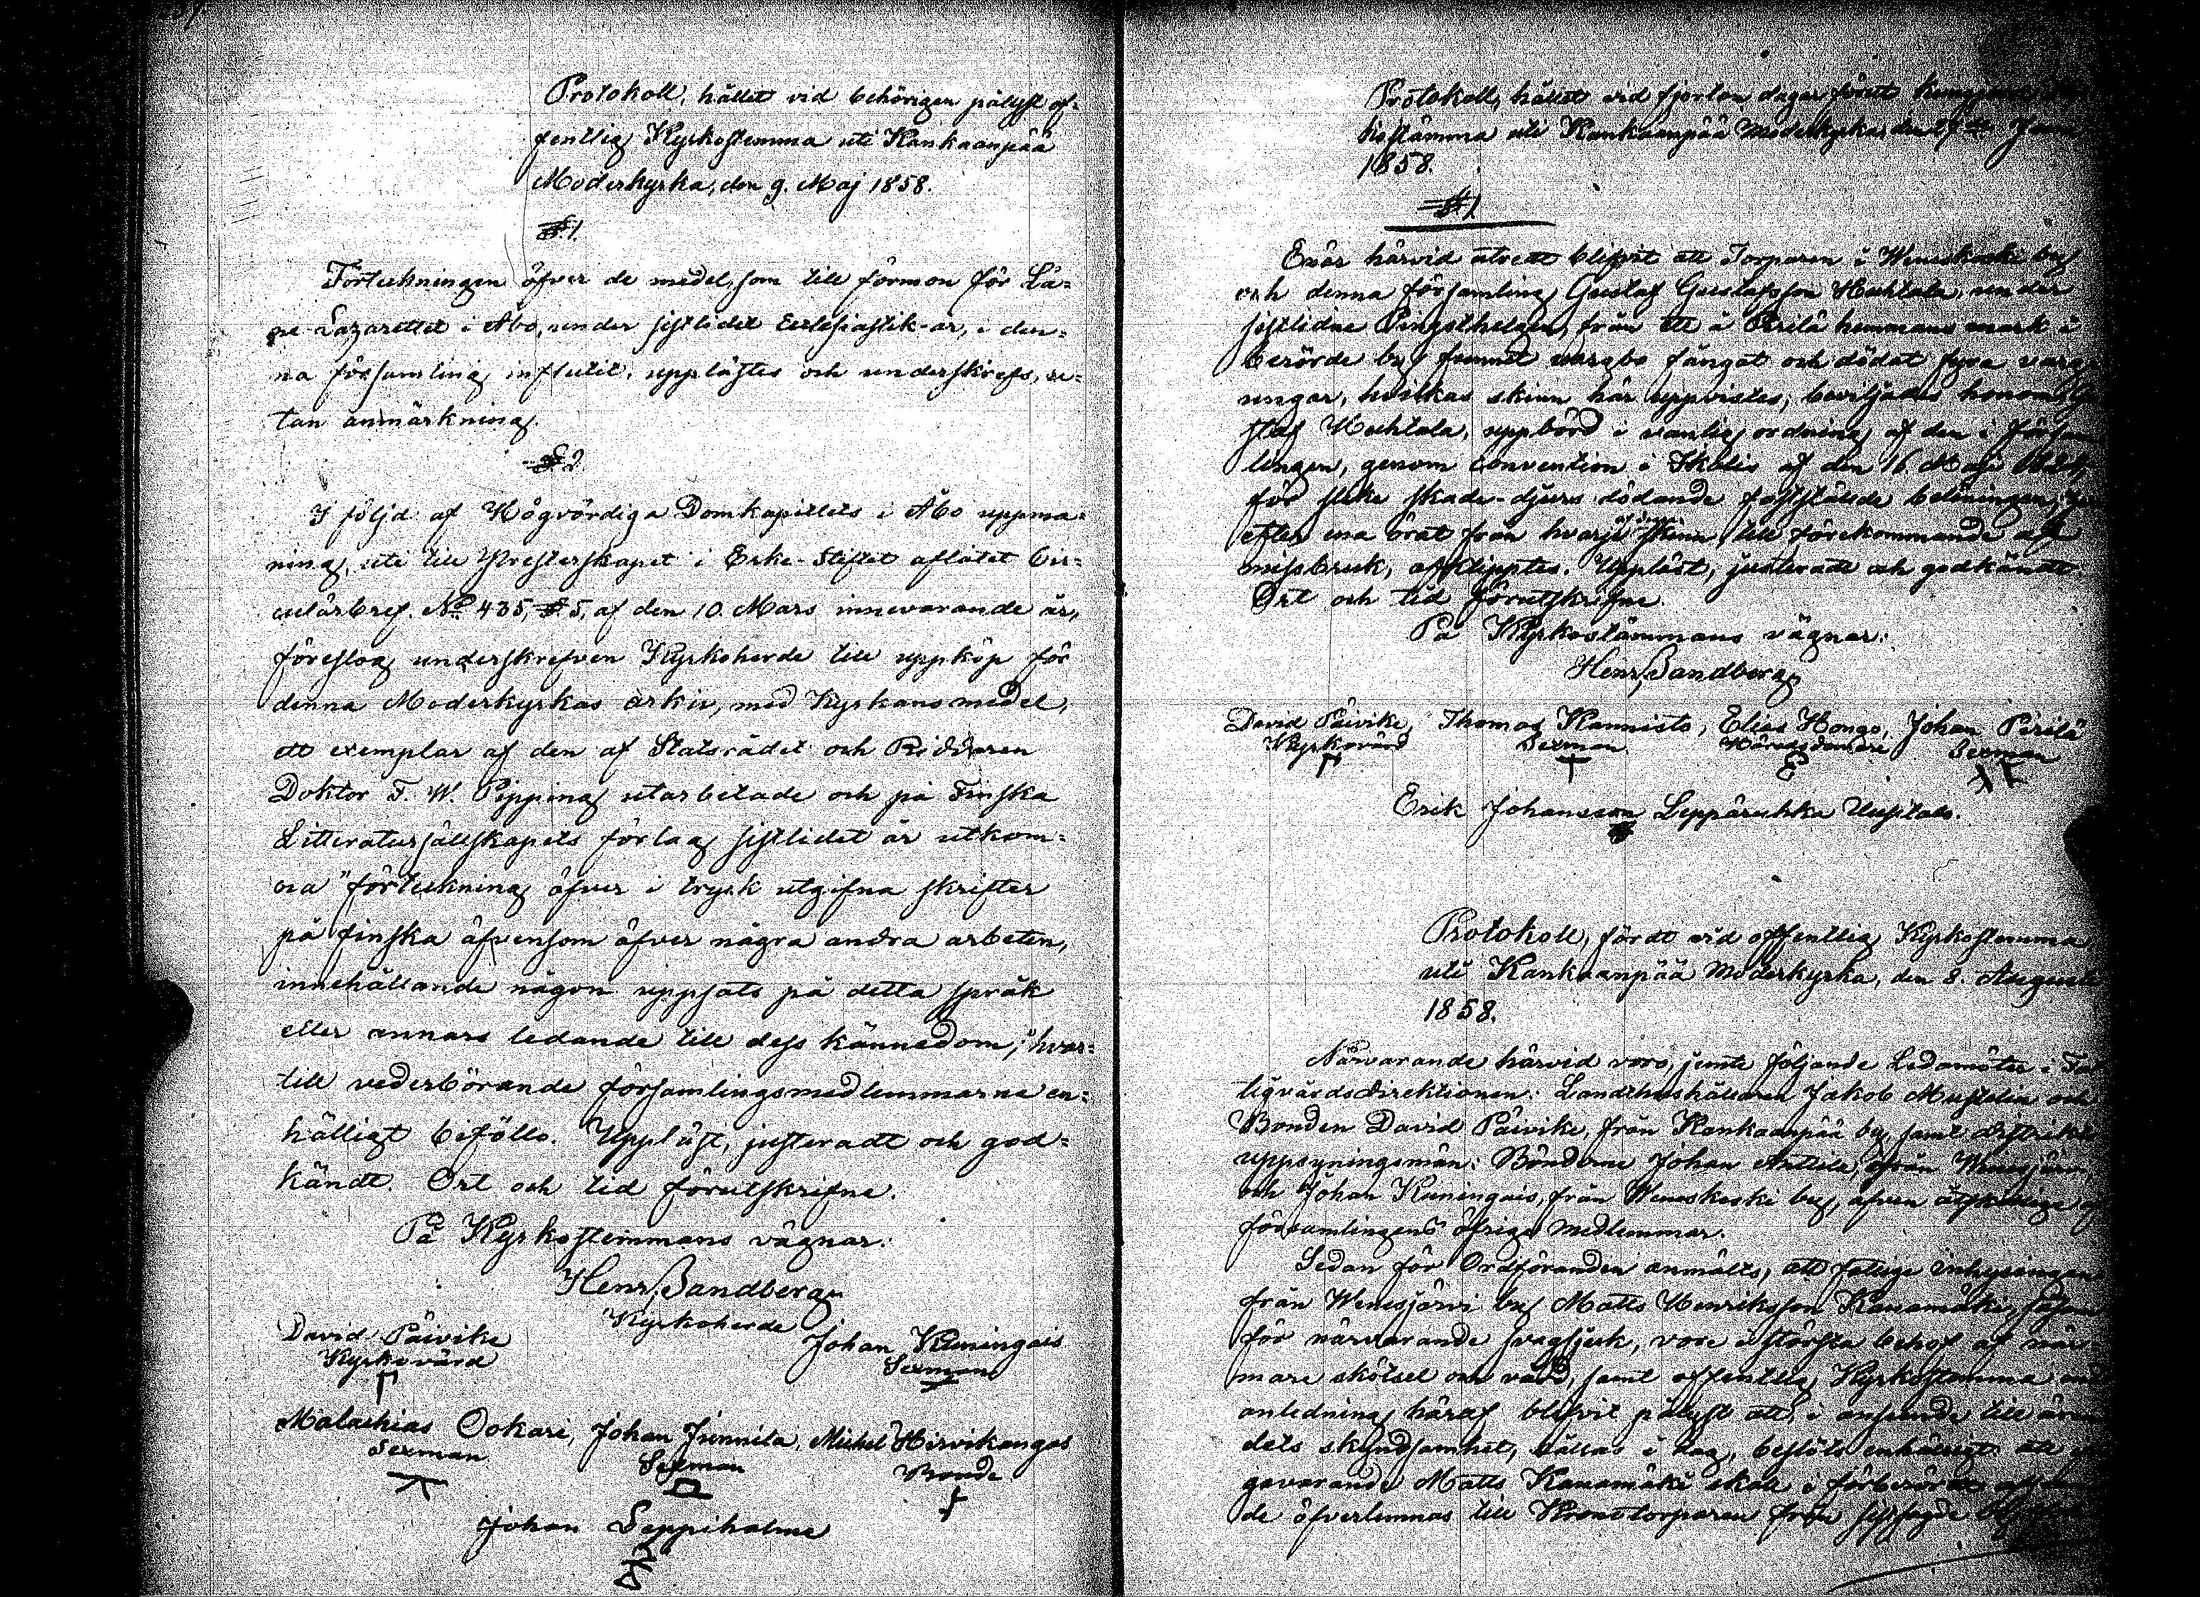 Protokoll, hållet vid behörigen pålyst of-
fentlig Kyrkostemma uti Kankaanpää
Moderkyrka, den 9. Maj 1858.
§.1.
Förteckningen öfver de medel, som till förmon för Lä-
ne-Lazarettet i Åbo, under sistlidet Ecclesiastik-år, i den-
na församling influtit, upplästes och underskrefs, u-
tan anmärkning.
§ 2.
I följd af Högvördiga Domkapitlets i Åbo uppma-
ning, uti till Presterskapet i Erke-Stiftet aflåtet Cir-
culärbref. No 435, § 5, af den 10. Mars innevarande år,
föreslog underskrefven Kyrkoherde till uppköp för
denna Moderkyrkas arkiv, med Kyrkans medel,
ett exemplar af den af Statsrådet och Riddaren
Doktor F. W. Pipping utarbetade och på Finska
Litteratursällskapets förlag sistlidet år utkom-
na "förteckning öfver i tryck utgifna skrifter
på finska äfvensom öfver några andra arbeten,
innehållande någon uppsats på detta språk
eller annars ledande till dess kännedom," hvar-
till vederbörande församlingsmedlemmarne en-
hälligt biföllo. Uppläst, justeradt och god-
kändt. Ort och tid förutskrifne.
På Kyrkostemmans vägnar:
Henr, Sandberg
Kyrkoherde
David Päivike Johan Kuningais
Kyrkovärd Sexman
Malachias Ookari, Johan Jinnila, Michel Hirvikangas
Sexman Sexman Bonde
Johan Seppiholma
Protokoll, hållet vid fjorton dagar förut
kostämma uti Kankaanpää Moderkyrka, den
1858.
§ 1.
Enär härvid utredt blifvit att Torparen i Weneskoski by
och denna församling Gustaf Gustafsson Huhtala, under
sistlidne Pingsthelgen, från ett å Perilä hemmans mark i
berörde by funnet vargbo fångat och dödat fyra varg-
ungar, hvilkas skinn här uppvistes, beviljades honom,
Huhtala, uppbörd i vanlig ordning af den i
lingen, genom convention i Ikalis af den 16 Maj
för slike skade-djurs dödande fastställde belöningen,
efter ena örat från hvarje af dessa skinn, till förekommande af
missbruk, afklipptes. Uppläst, justeradt och godkändt
Ort och tid förutskrifne.
På Kyrkostämmans vägnar:
Henr, Sandberg
David Päivike, Thomas Kannisto, Elias Hongo, Johan Perilä
Kyrkovärd Sexman Häradsdomare Sexman
Erik Johansson Leppäruhka
Protokoll, fördt vid offentlig Kyrkostemma
uti Kankaanpää Moderkyrka, den 8. Augusti
1858.
Närvarande härvid voro, jemte följande Ledamöter i
tigvårdsdirektionen: Landthushållaren Jakob Mustelin och
Bonden David Päivike, från Kankaanpää by, samt distrikts
uppsyningsmän: Bönderne Johan Anttila, från Wenesjärvi
och Johan Kuningais, från Weneskoski by, äfven åtskillige af
församlingens öfriga medlemmar.
Sedan för Ordföranden anmälts, att fattige inhysingen
från Wenesjärvi by Matts Henriksson Kanamäki, såsom
för närvarande svagsjuk, vore i största behof af när-
mare skötsel och vård, samt offentlig Kyrkostemma
anledning häraf blifvit pålyst att, i anseende till ären-
dets skyndsamhet, hållas i dag, beslöts enhälligt att
Matts Kanamäki skall
de öfverlemnas till Kronotorparen från